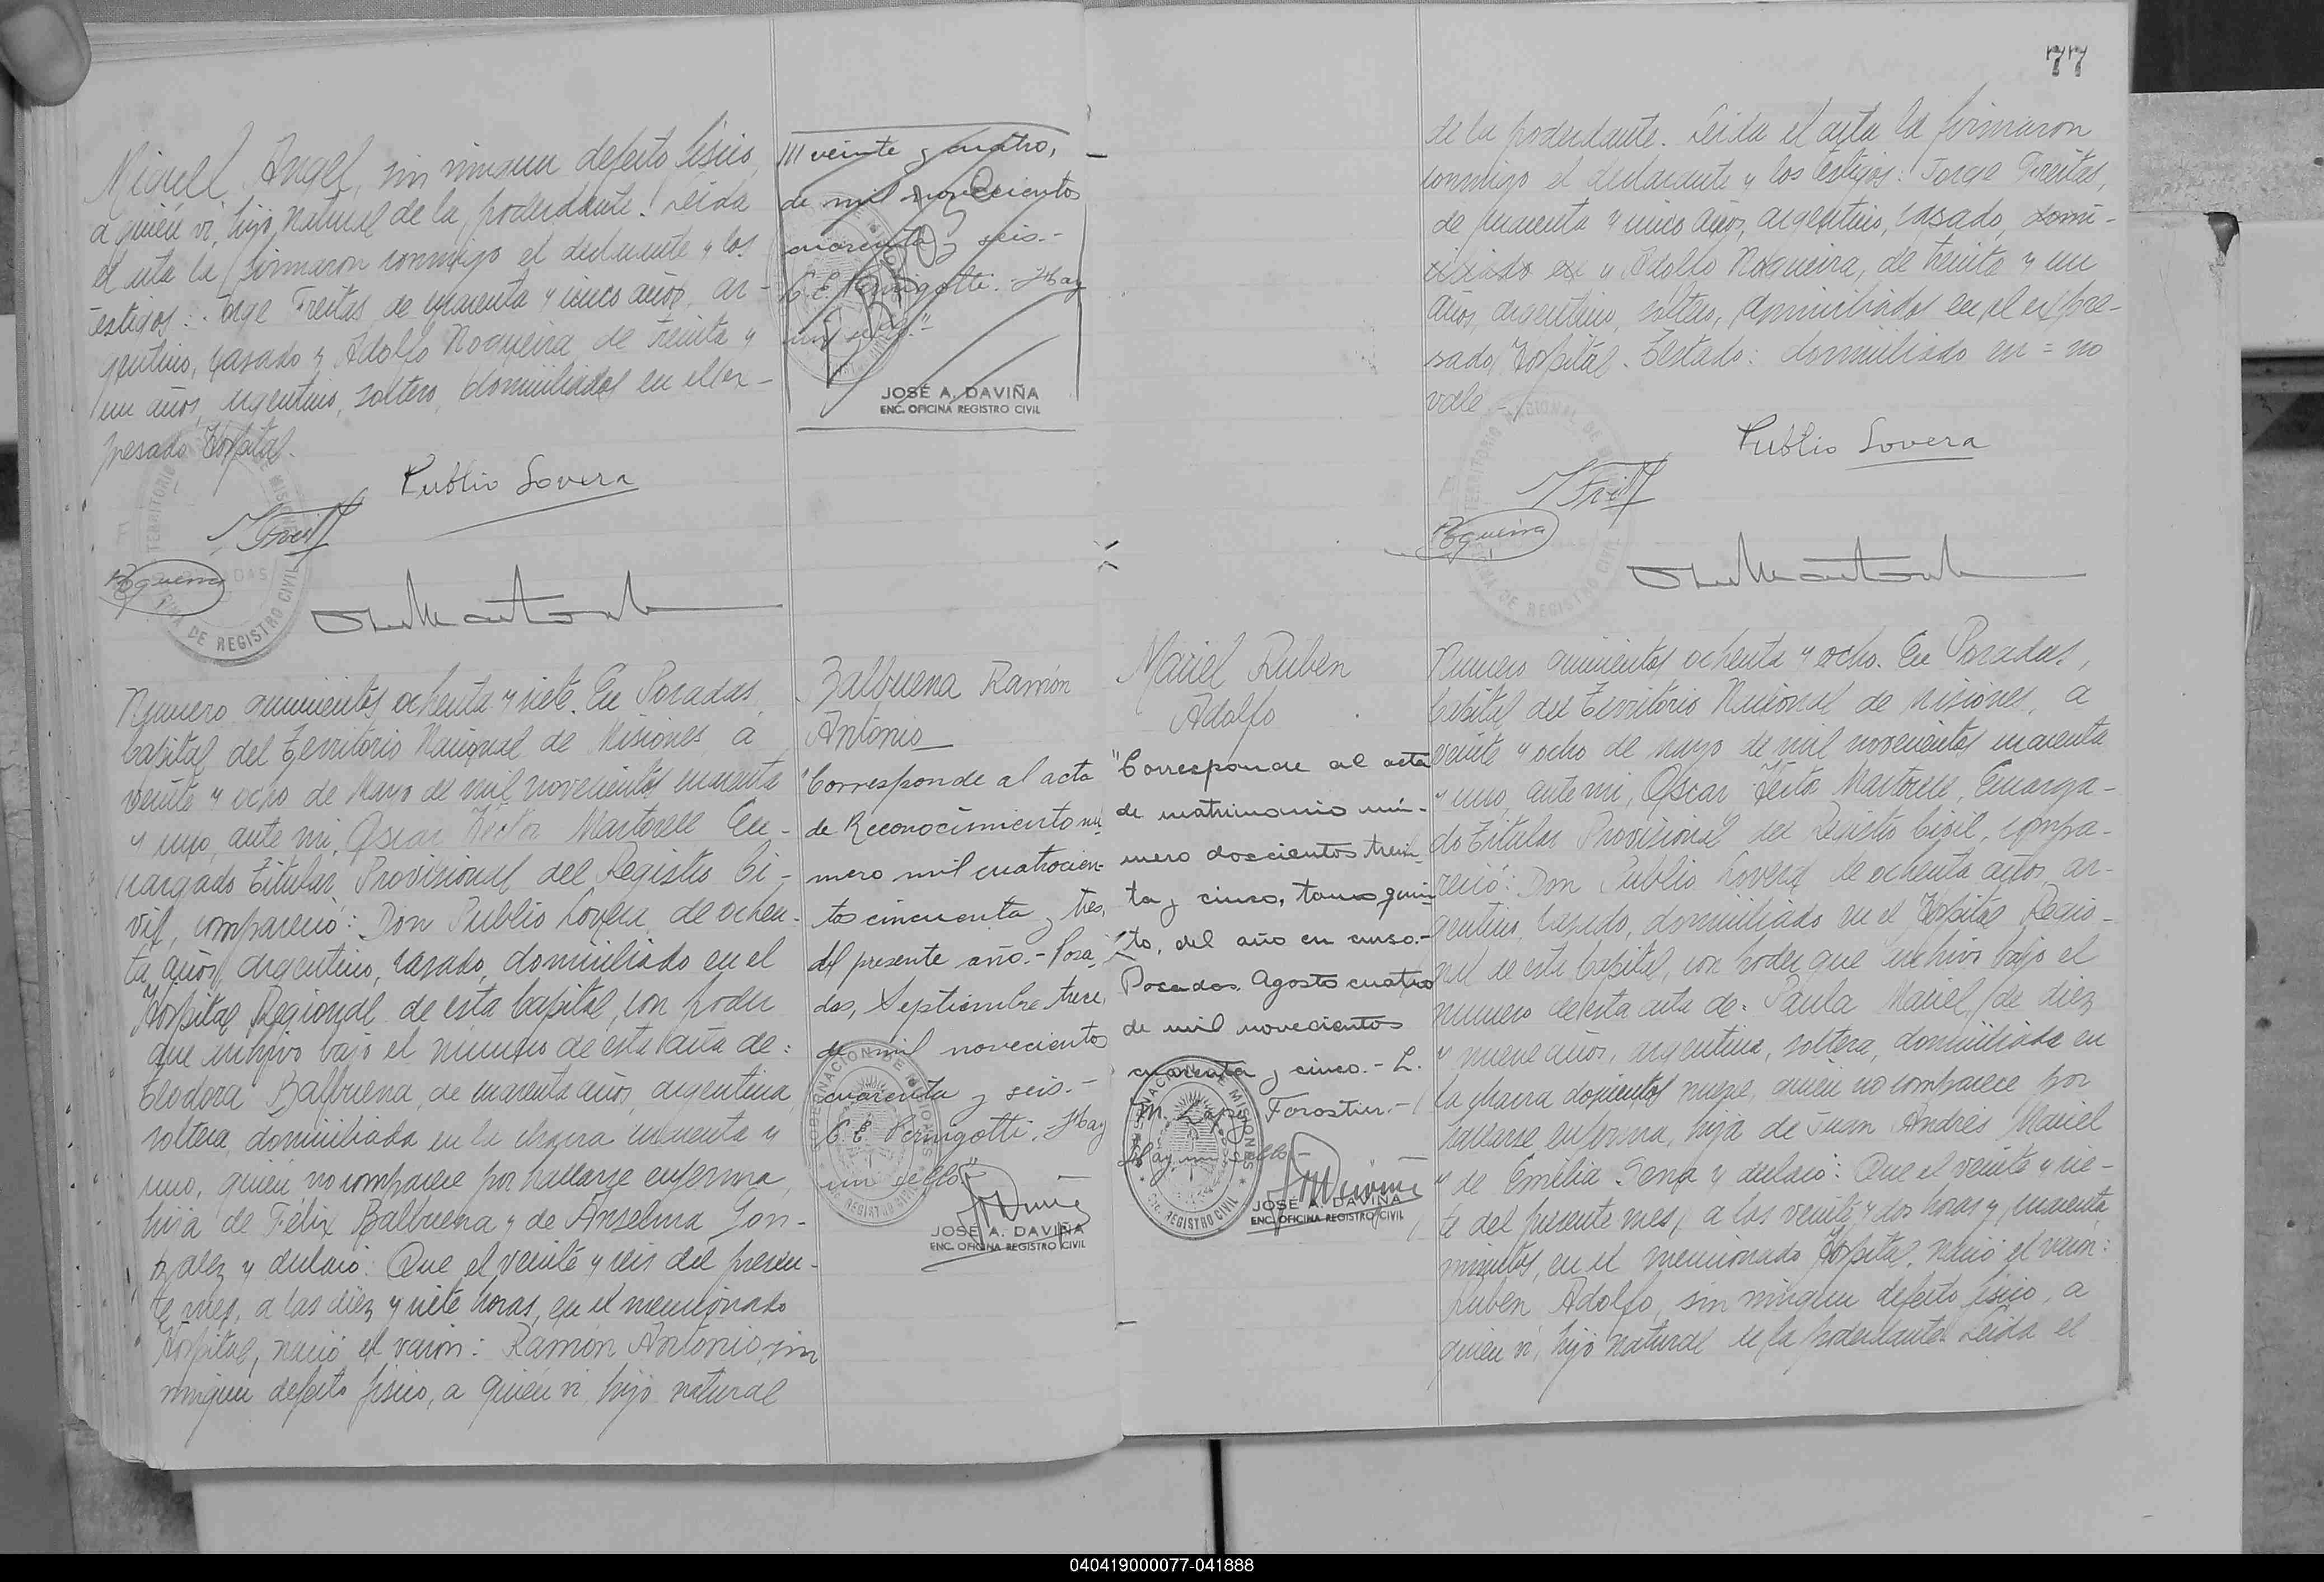 Miguel Angel, sin ningun defecto físico,
a quién ví, hijo natural de la poderdante. Leida
el acta la firmaron conmigo el declarante y los
testigos: Jorge Freitas de cuarenta y cinco años, ar-
gentino, casado y Adolfo Nogueira de treinta y
un años, argentino, soltero, domiciliados en el ex-
presado Hospital.
Publio Lovera
JFreit
Nogueira
III veinte y cuatro,
de mil novecientos
cuarenta y seis.-
C. E. Pernigotti.- Hay
un sello."
JOSÉ A. DAVIÑA
ENC. OFICINA REGISTRO CIVIL
Número quinientos ochenta y siete. En Posadas,
Capital del Territorio Nacional de Misiones, a
veinte y ocho de Mayo de mil novecientos cuarenta
y uno, ante mi, Oscar Héctor Martorell En-
cargado Titular Provisional del Registro Ci-
vil, compareció: Don Publio Lovera de ochen-
ta años, argentino, casado, domiciliado en el
Hospital Regional de esta Capital, con poder
que archivo bajo el número de esta acta de:
Teodora Balbuena, de cuarenta años, argentina,
soltera, domiciliada en la chacra cuarenta y
uno, quién no comparece por hallarse enferma,
hija de Félix Balbuena y de Anselma Gon-
zalez y declaró: Que el veinte y seis del presen-
te mes, a las diez y siete horas, en el mencionado
Hospital, nació el varón: Ramón Antonio, sin
ningun defecto físico, a quién ví, hijo natural
Balbuena Ramón
Antonio
"Corresponde al acta
de Reconocimiento nú-
mero mil cuatrocien-
tos cincuenta y tres,
del presente año.- Posa-
das, Septiembre trece,
de mil novecientos
cuarenta y seis.-
C. E. Pernigotti.- Hay
un sello."
JOSÉ A. DAVIÑA
ENC. OFICINA REGISTRO CIVIL
77
de la poderdante. Leida el acta la firmaron
conmigo el declarante y los testigos: Jorge Freitas,
de cuarenta y cinco años, argentino, casado, domi-
ciliado en y Adolfo Nogueira, de treinta y un
años, argentino, soltero, domiciliados en el expre-
sado Hospital. Testado: domiciliado en = no
vale -
Publio Lovera
JFreit
Nogueira
Mariel Ruben
Adolfo
"Corresponde al acta
de matrimonio nú-
mero doscientos trein-
ta y cinco, tomo quin-
to, del año en curso.-
Posadas, Agosto cuatro
de mil novecientos
cuarenta y cinco.- L.
M. Lopez Forastier.-
Hay un sello.-
JOSÉ A. DAVIÑA
ENC. OFICINA REGISTRO CIVIL
Número quinientos ochenta y ocho. En Posadas,
Capital del Territorio Nacional de Misiones, a
veinte y ocho de mayo de mil novecientos cuarenta
y uno, ante mi, Oscar Héctor Martorell, Encarga-
do Titular Provisional del Registro Civil, compa-
reció: Don Publio Lovera de ochenta años, ar-
gentino, casado, domiciliado en el Hospital Regio-
nal de esta Capital, con poder que archivo bajo el
número de esta acta de: Paula Mariel, de diez
y nueve años, argentina, soltera, domiciliada en
la chacra doscientos nueve, quién no comparece por
hallarse enferma, hija de Juan Andrés Mariel
y de Emilia Sena y declaró: Que el veinte y sie-
te del presente mes, a las veinte y dos horas y cuarenta
minutos, en el mencionado Hospital, nació el varón:
Ruben Adolfo, sin ningun defecto físico, a
quién ví, hijo natural de la poderdante. Leida el
040419000077-041888